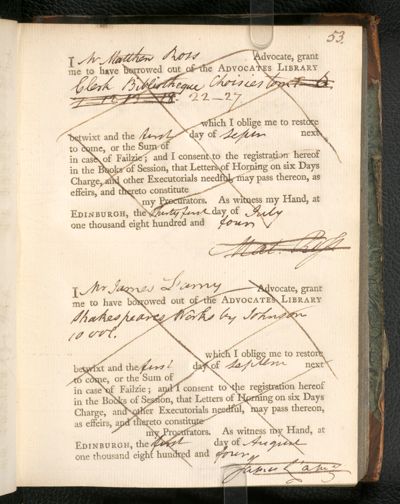 53.
I Mr Matthew Ross Advocate, grant
me to have borrowed out of the ADVOCATES LIBRARY
Clerk Bibliotheque Choisie
22–27
which I oblige me to restore
betwixt and the first day of Septr next
to come, or the Sum of
in case of Failzie; and I consent to the registration hereof
in the Books of Session, that Letters of Horning on six Days
Charge, and other Executorials needful, may pass thereon, as
effeirs, and thereto constitute
my Procurators. As witness my Hand, at
EDINBURGH, the thirty first day of July
one thousand eight hundred and four
Mat. Ross
I Mr James L'amy Advocate, grant
me to have borrowed out of the ADVOCATES LIBRARY
Shakespeares Works by Johnson
10 vol.
which I oblige me to restore
betwixt and the first day of Septem next
to come, or the Sum of
in case of Failzie; and I consent to the registration hereof
in the Books of Session, that Letters of Horning on six Days
Charge, and other Executorials needful, may pass thereon,
as effeirs, and thereto constitute
my Procurators. As witness my Hand, at
EDINBURGH, the first day of August
one thousand eight hundred and four
James L'amy